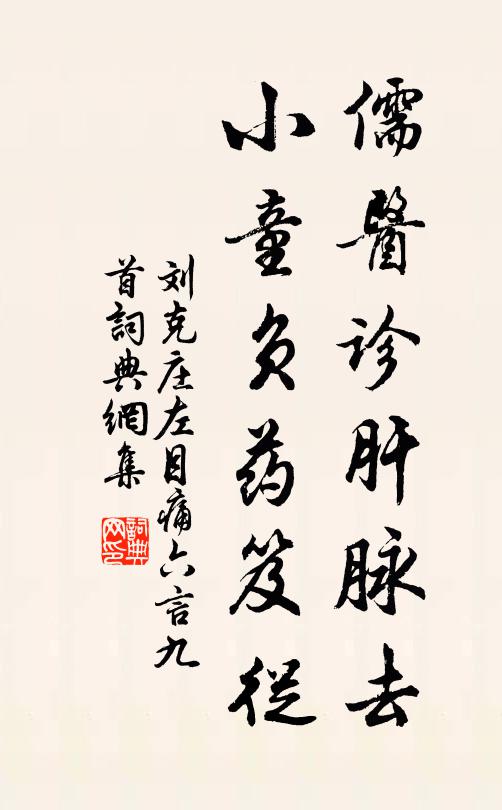 儒醫診肝脉去
小童负药笈從
刘克庄左目痛六言九
首詞典網集
詞典网印